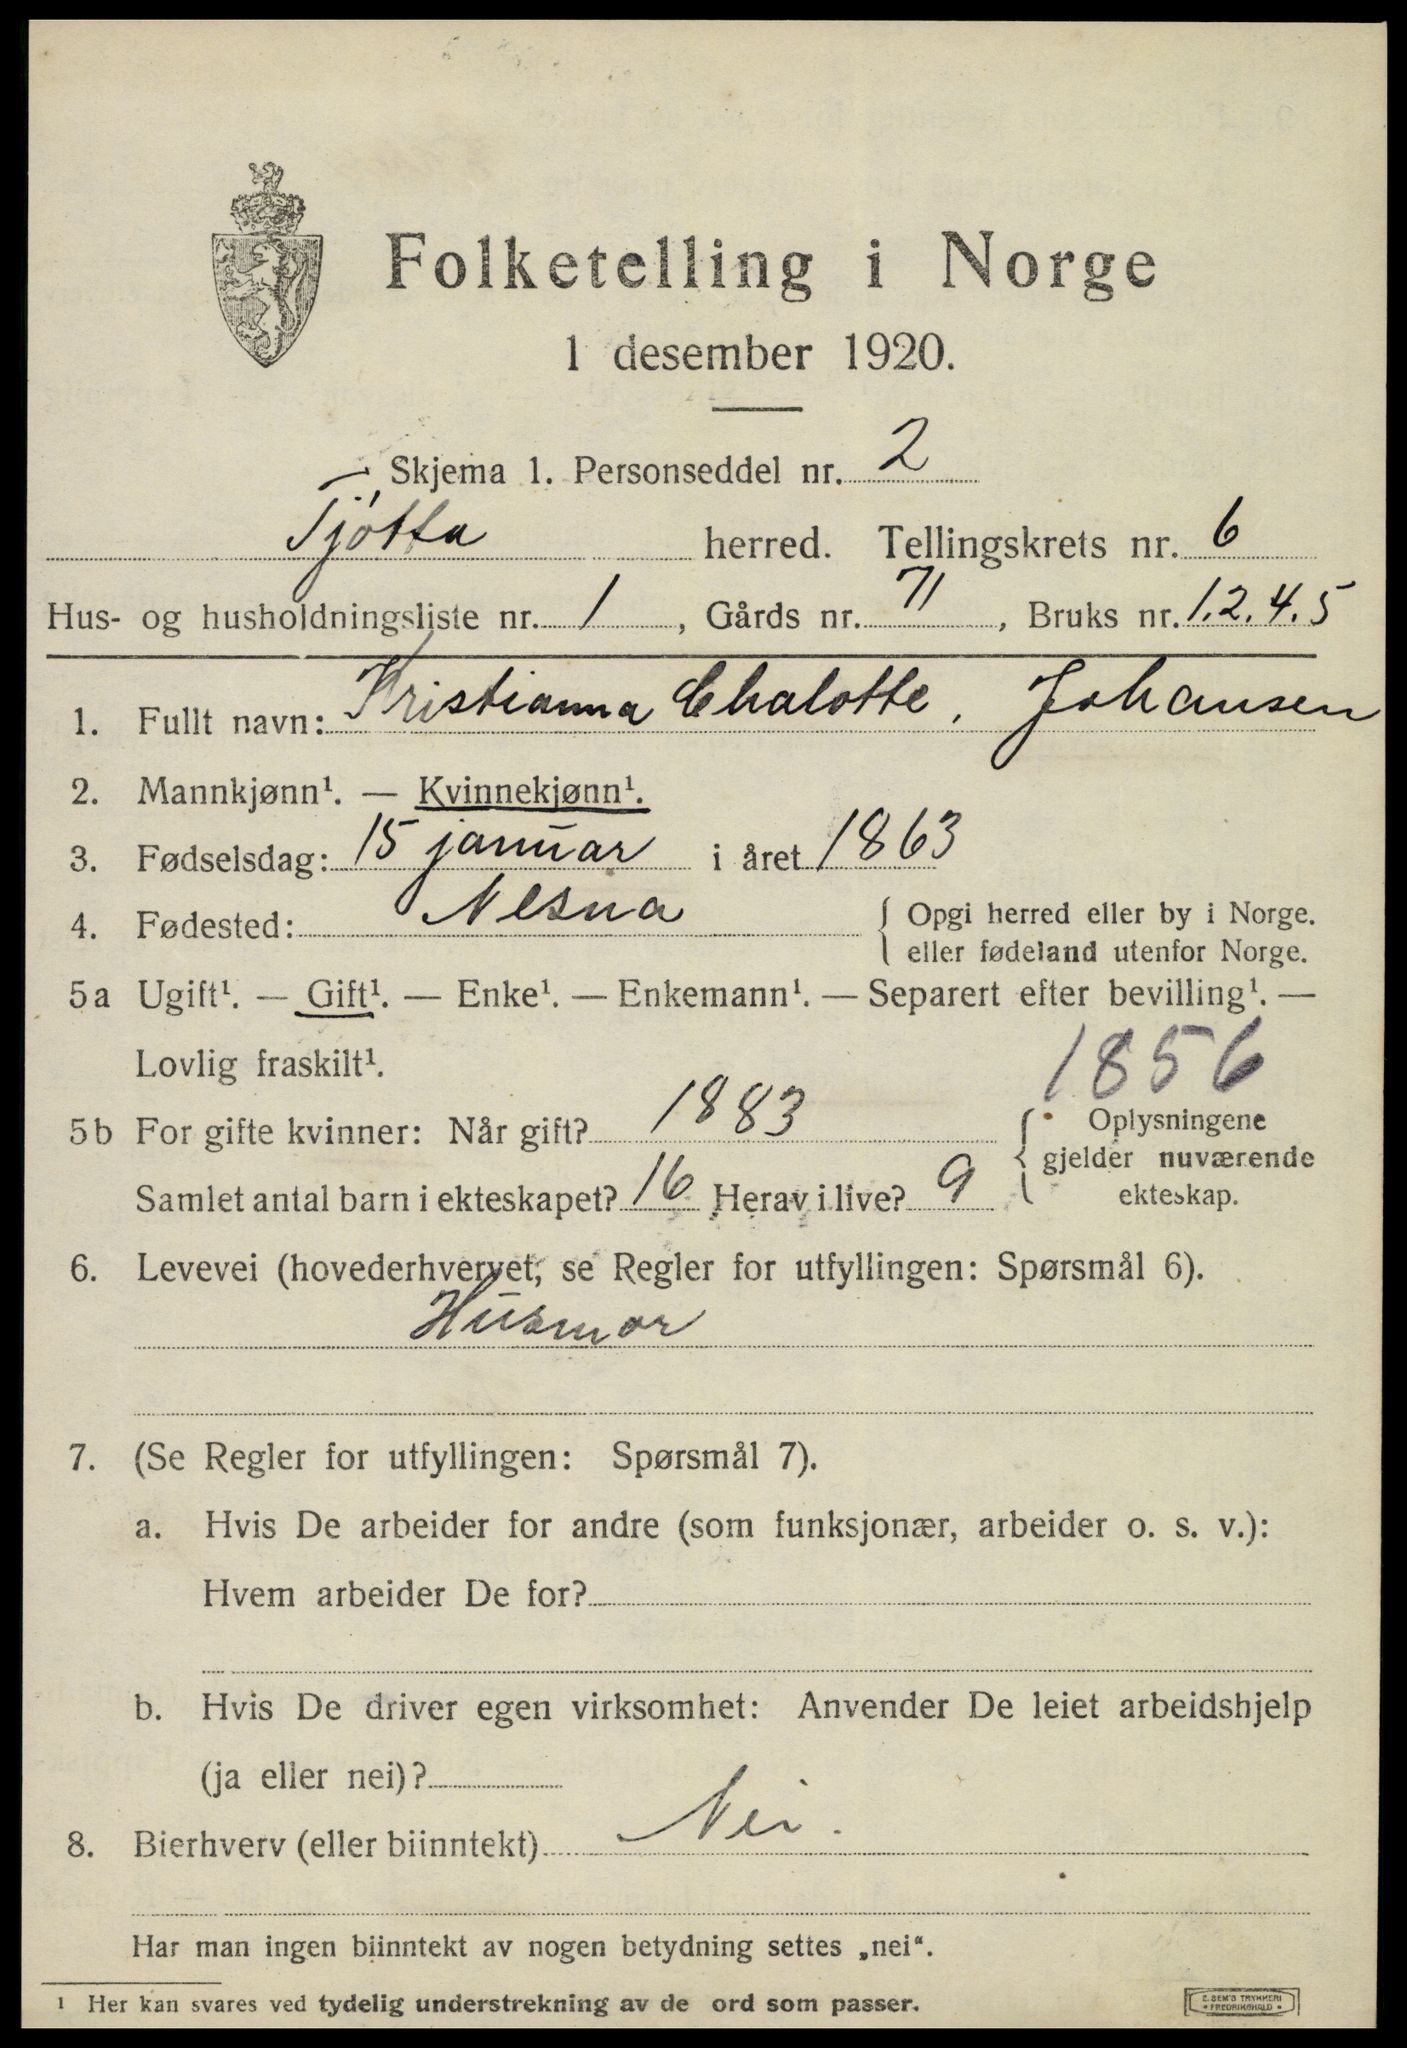 Folketelling i Norge
1 desember 1920.
Skjema 1. Personseddel nr. 2
Tjøtta herred. Tellingskrets nr. 6
Hus- og husholdningsliste nr. 1, Gårds nr. 71, Bruks nr. 1.2.4.5
1. Fullt navn: Kristianna Chalotte, Johansen
2. Mannkjønn¹. — Kvinnekjønn¹.
3. Fødselsdag: 15 januar i året 1863
4. Fødested: Nesna { Opgi herred eller by i Norge.
eller fødeland utenfor Norge.
5a Ugift¹. — Gift¹. — Enke¹. — Enkemann¹. — Separert efter bevilling¹. —
Lovlig fraskilt¹.
1856
5b For gifte kvinner: Når gift? 1883
Samlet antal barn i ekteskapet? 16 Herav i live? 9
{ Oplysningene
gjelder nuværende
ekteskap.
6. Levevei (hovederhvervet, se Regler for utfyllingen: Spørsmål 6).
Husmor
7. (Se Regler for utfyllingen: Spørsmål 7).
a. Hvis De arbeider for andre (som funksjonær, arbeider o. s. v.):
Hvem arbeider De for?
b. Hvis De driver egen virksomhet: Anvender De leiet arbeidshjelp
(ja eller nei)?
8. Bierhverv (eller biinntekt) Nei.
Har man ingen biinntekt av nogen betydning settes „nei“.
¹ Her kan svares ved tydelig understrekning av de ord som passer.
E. SEM'S TRYKKERI
• FREDRIKSHALD •